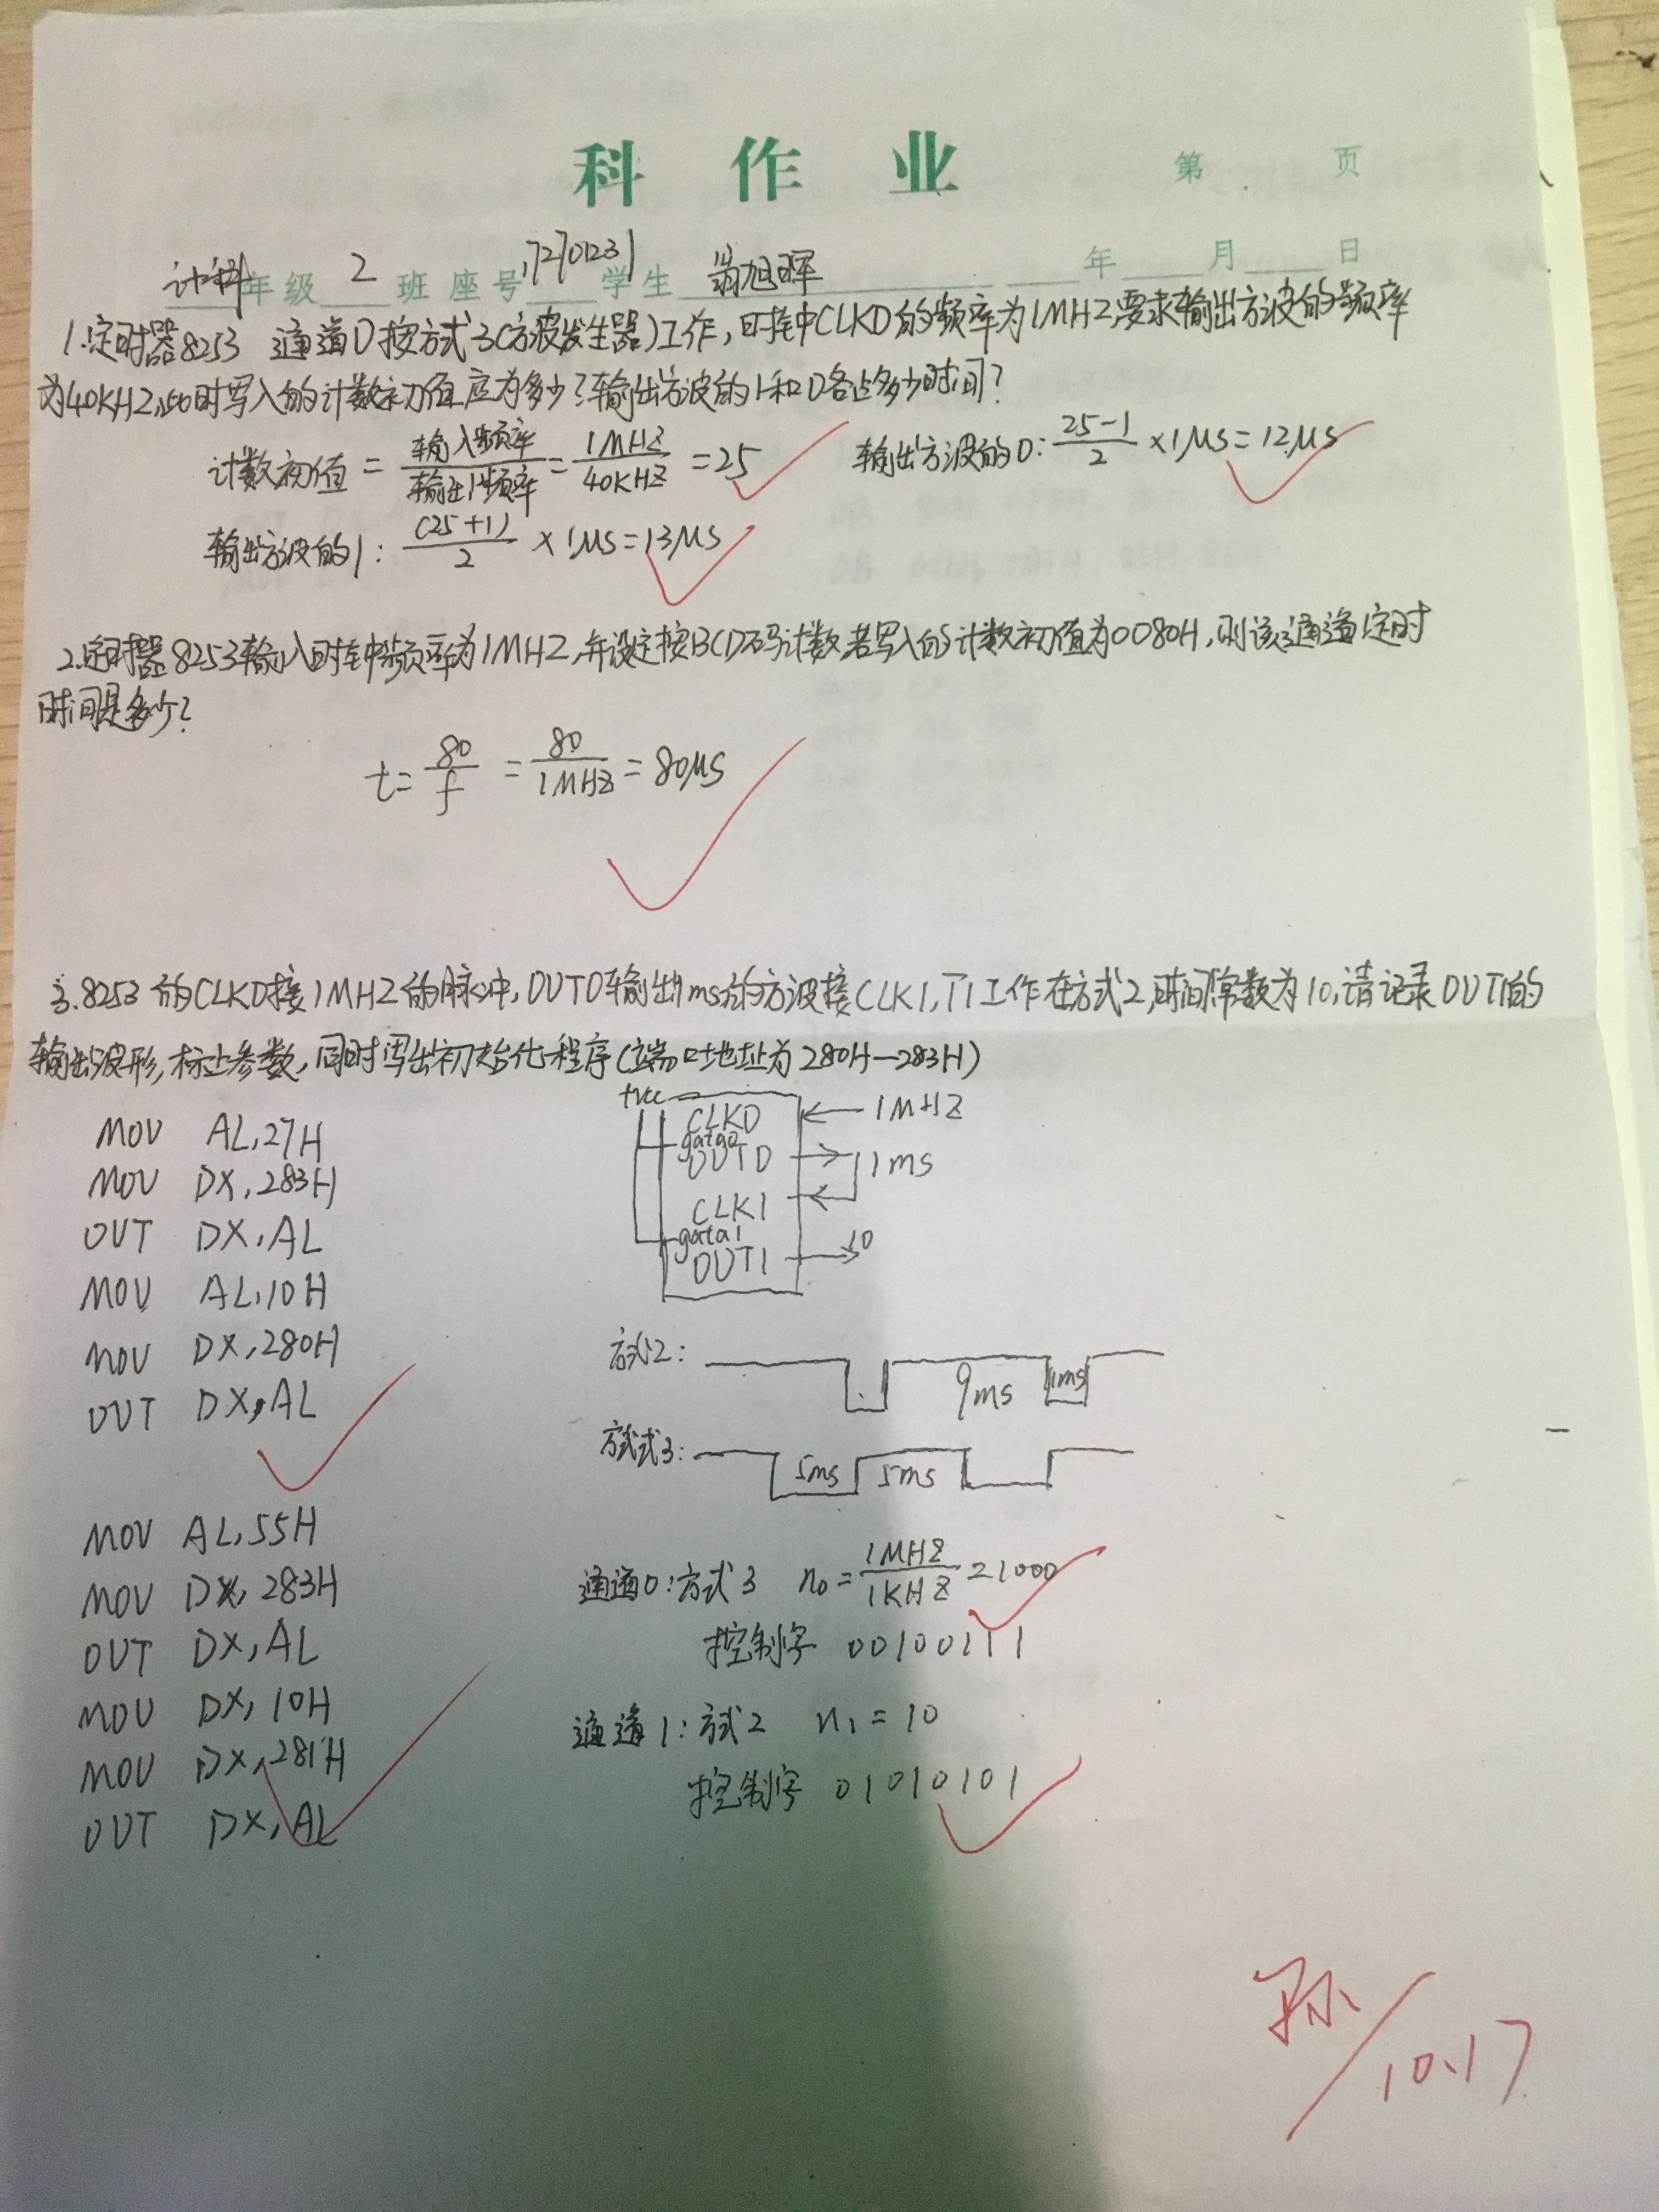 科 作 业
第 页
计科年级 2 班 座号 172701231 学生 翁旭晖 年 月 日
1.定时器8253 通道0按方式3(方波发生器)工作,时钟CLK0的频率为1MHZ,要求输出方波的频率
为40KHZ,此时写入的计数初值应为多少?输出方波的1和0各占多少时间?
计数初值 = 输入频率/输出频率 = 1MHZ/40KHZ = 25 输出方波的0: (25-1)/2 ×1μs = 12μs
输出方波的1: (25+1)/2 ×1μs = 13μs
2.定时器8253输入时钟频率为1MHZ,并设定按BCD码计数,若写入的计数初值为0080H,则该通道定时
时间是多少?
t = 80/f = 80/1MHZ = 80μs
3.8253的CLK0接1MHZ的脉冲,OUT0输出1ms的方波接CLK1,T1工作在方式2,时间常数为10,请记录OUT1的
输出波形,标上参数,同时写出初始化程序(端口地址为280H—283H)
MOV AL,27H
MOV DX,283H
OUT DX,AL
MOV AL,10H
MOV DX,280H
OUT DX,AL
MOV AL,55H
MOV DX,283H
OUT DX,AL
MOV DX,10H
MOV DX,281H
OUT DX,AL
+vcc
CLK0 1MHZ
gata0
OUT0 1ms
CLK1
gata1
OUT1 10
方式2: 9ms 1ms
方式3: 5ms 5ms
通道0:方式3 n₀ = 1MHZ/1KHZ = 1000
控制字 00100111
通道1:方式2 n₁ = 10
控制字 01010101
10.17